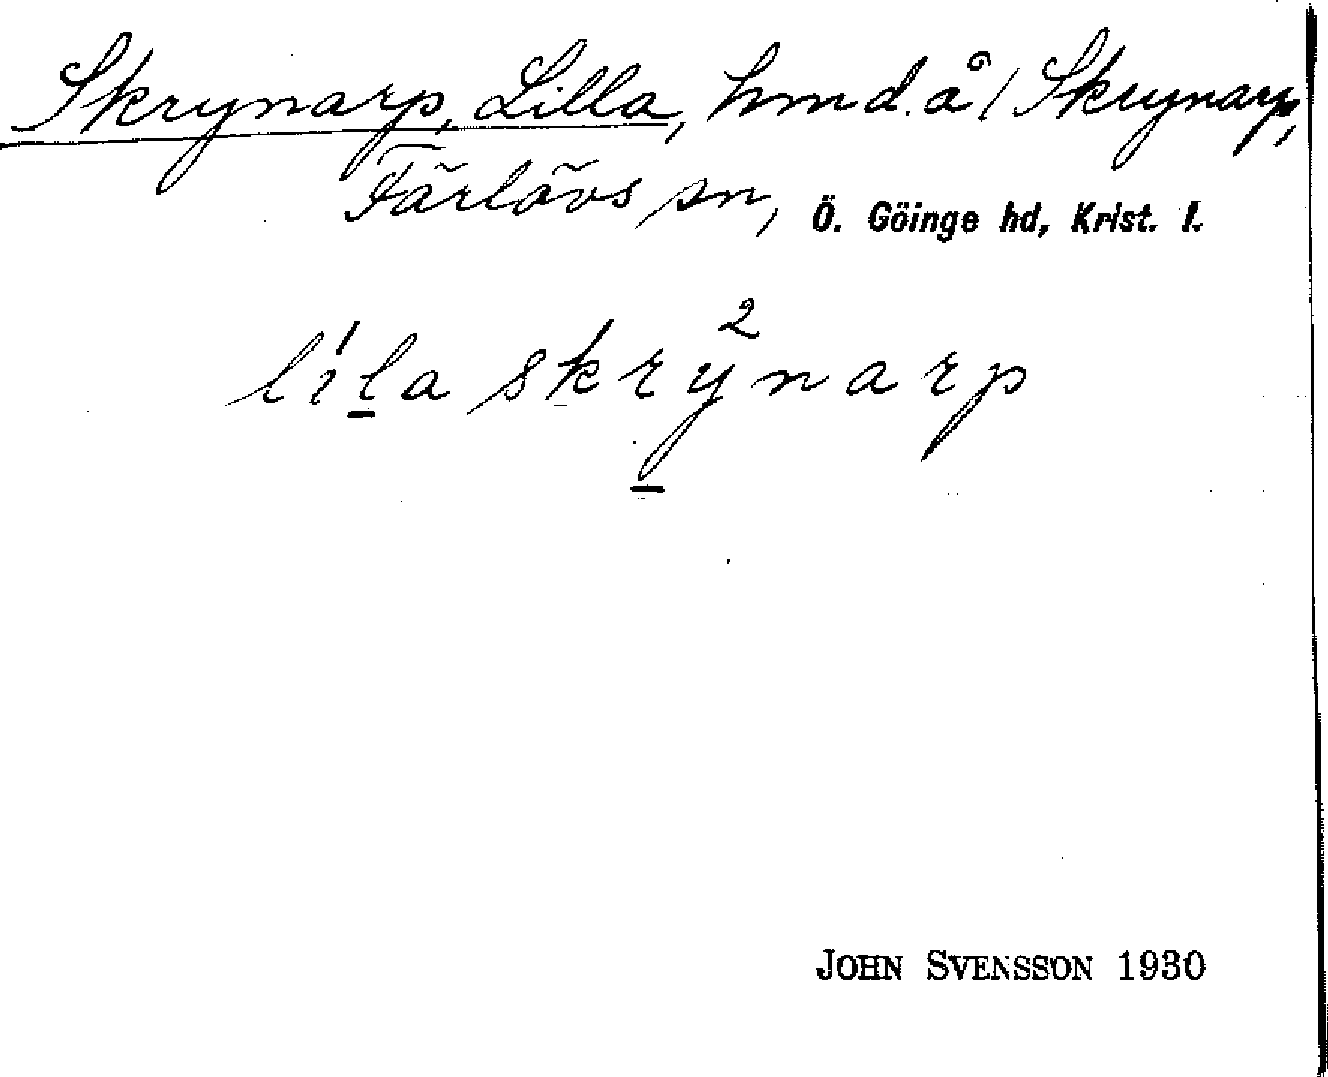 Skrynarp, Lilla, hmd. å / Skrynarp,
Färlövs sn, Ö. Göinge hd, Krist. l.
líl̲a skrẙ²narp
JOHN SVENSSON 1930